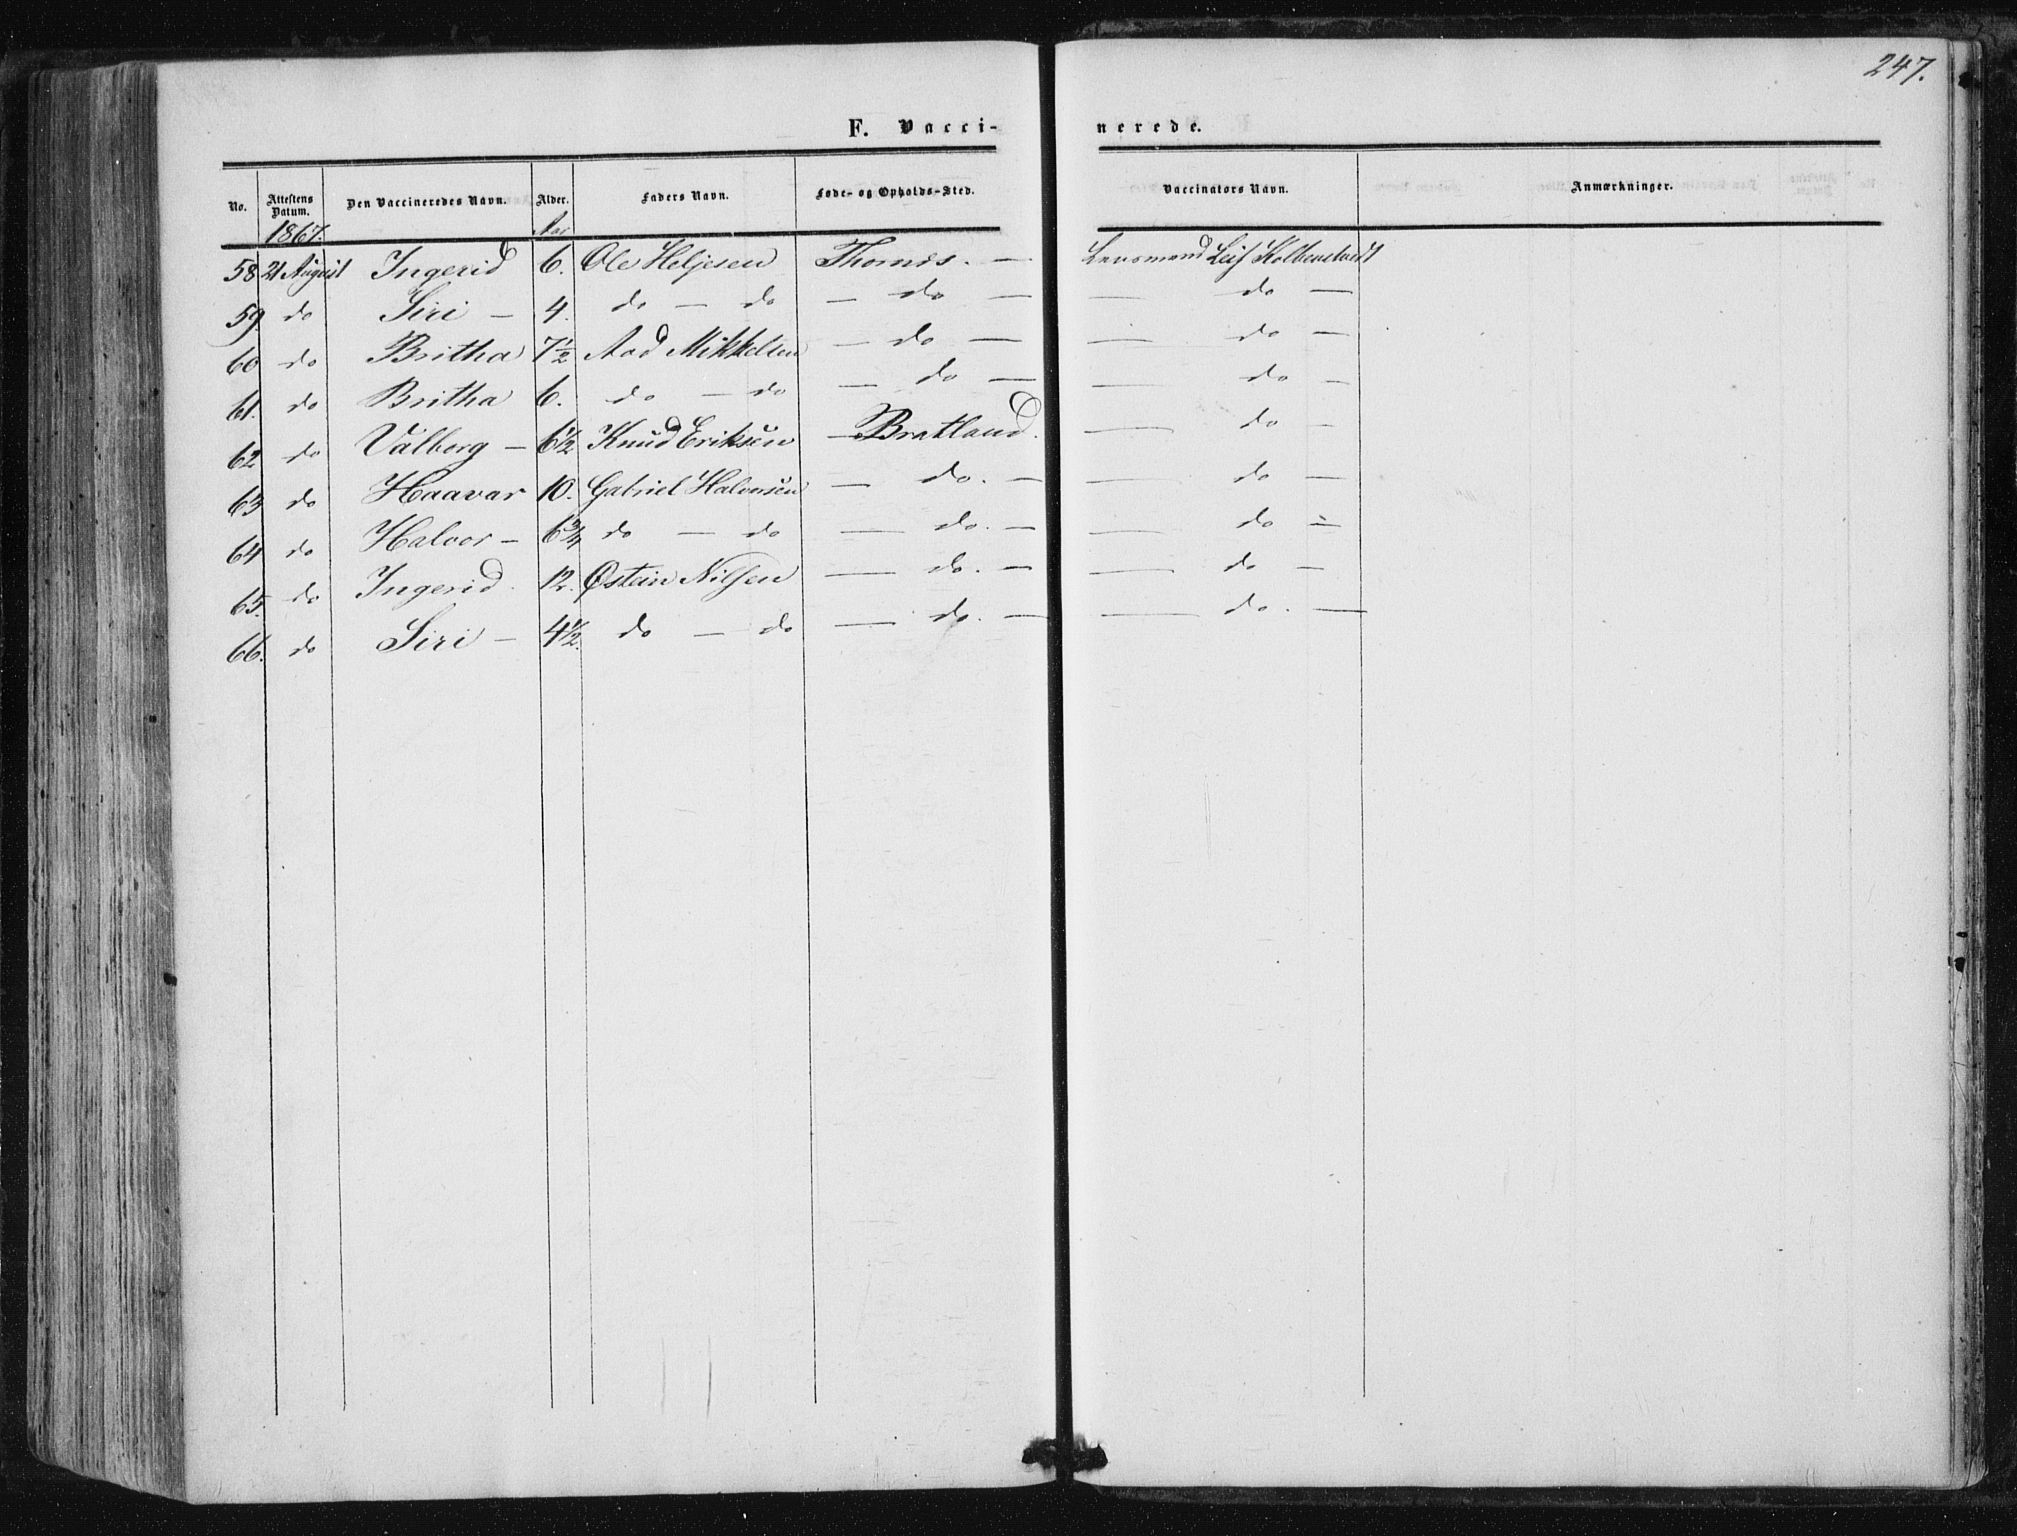 247.
F. Vacci- nerede.
No. Attestens Datum. Den Vaccineredes Navn. Alder. Faders Navn. Føde- og Opholds-Sted. Vaccinators Navn. Anmærkninger.
1867. Aar
58 21 August Ingerid 6. Ole Heljesen Thornes. — Lensmand Leif Kolbenstvedt
59. do Siri — 4. do — do — do — — do —
60 do Britha 7½ Aad Mikkelsen — do — — do —
61. do Britha 6. do — do — do — — do —
62 do Valborg — 6½ Knud Eriksen — Bratland. — do —
63 do Haavar 10. Gabriel Halvorsen — do. — — do —
64 do Halvor — 6¾ do — do — do. — — do —
65. do Ingerid. 12. Østein Nilsen — do. — — do —
66. do Siri — 4½. do — do — do. — — do. —